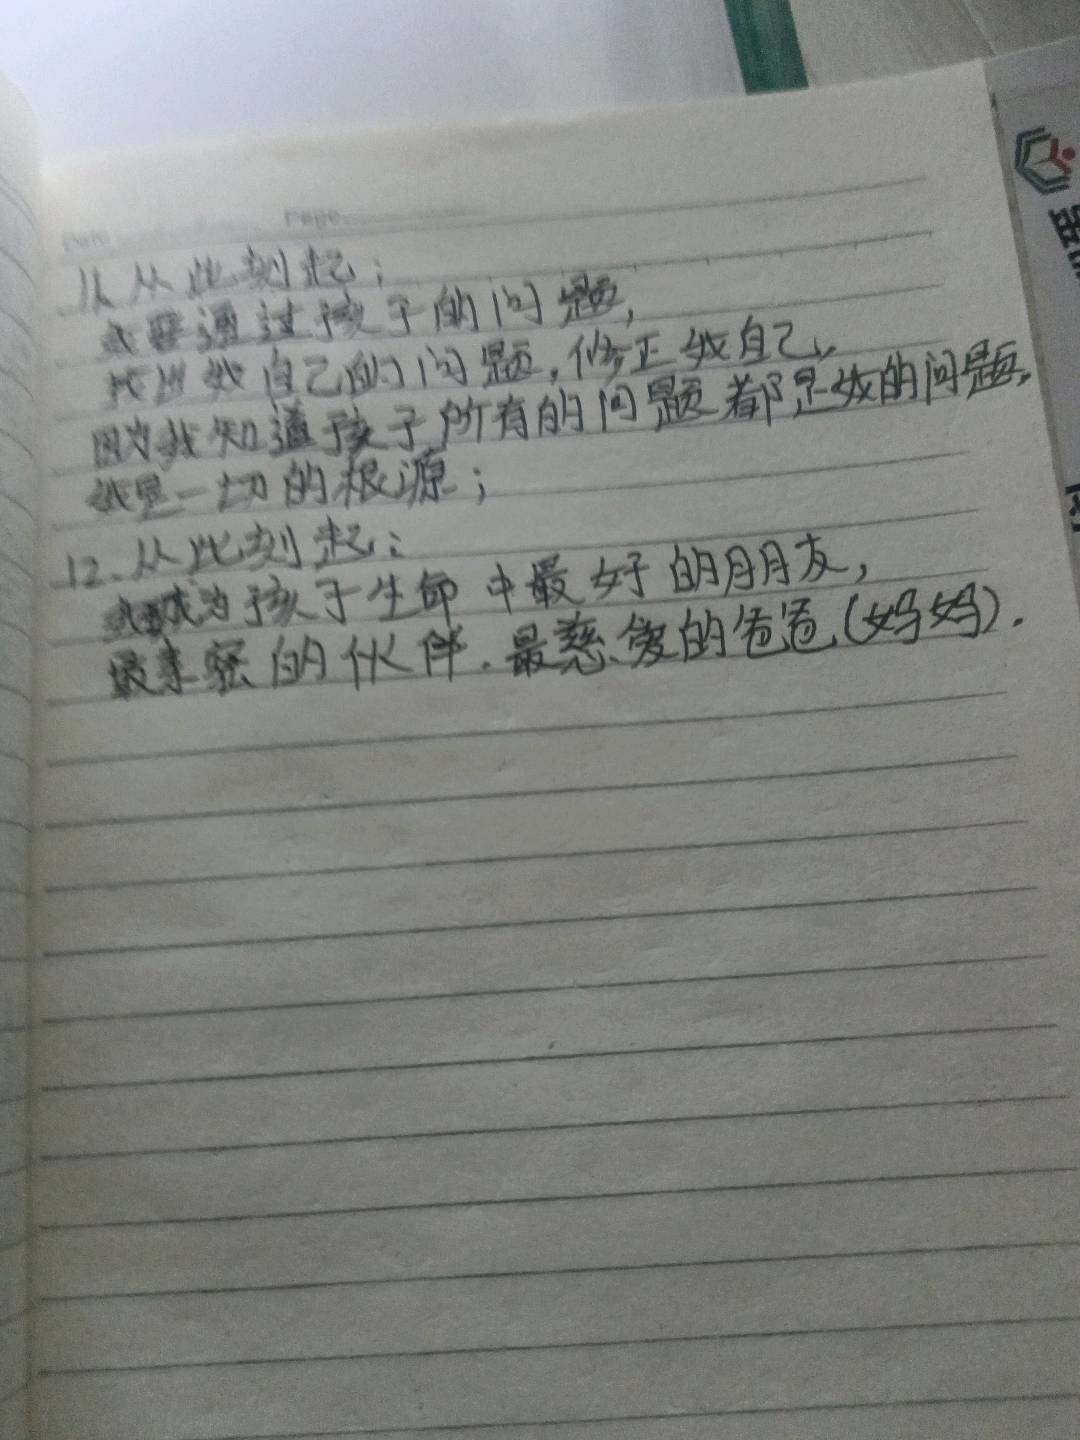 Date Page
11、从此刻起：
我要通过孩子的问题，
找出我自己的问题，修正我自己，
因为我知道孩子所有的问题都是我的问题，
我是一切的根源；
12.从此刻起：
我成为孩子生命中最好的朋友，
最亲密的伙伴.最慈爱的爸爸(妈妈).